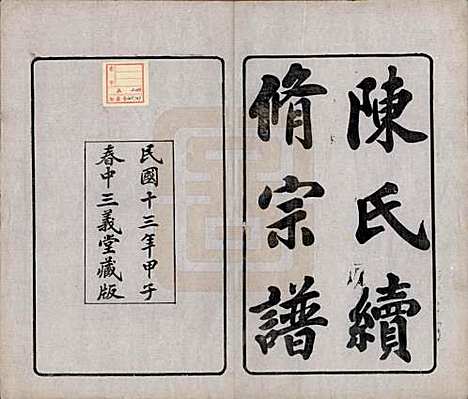 陳氏續
脩宗譜
民國十三年甲子
春中三義堂藏版